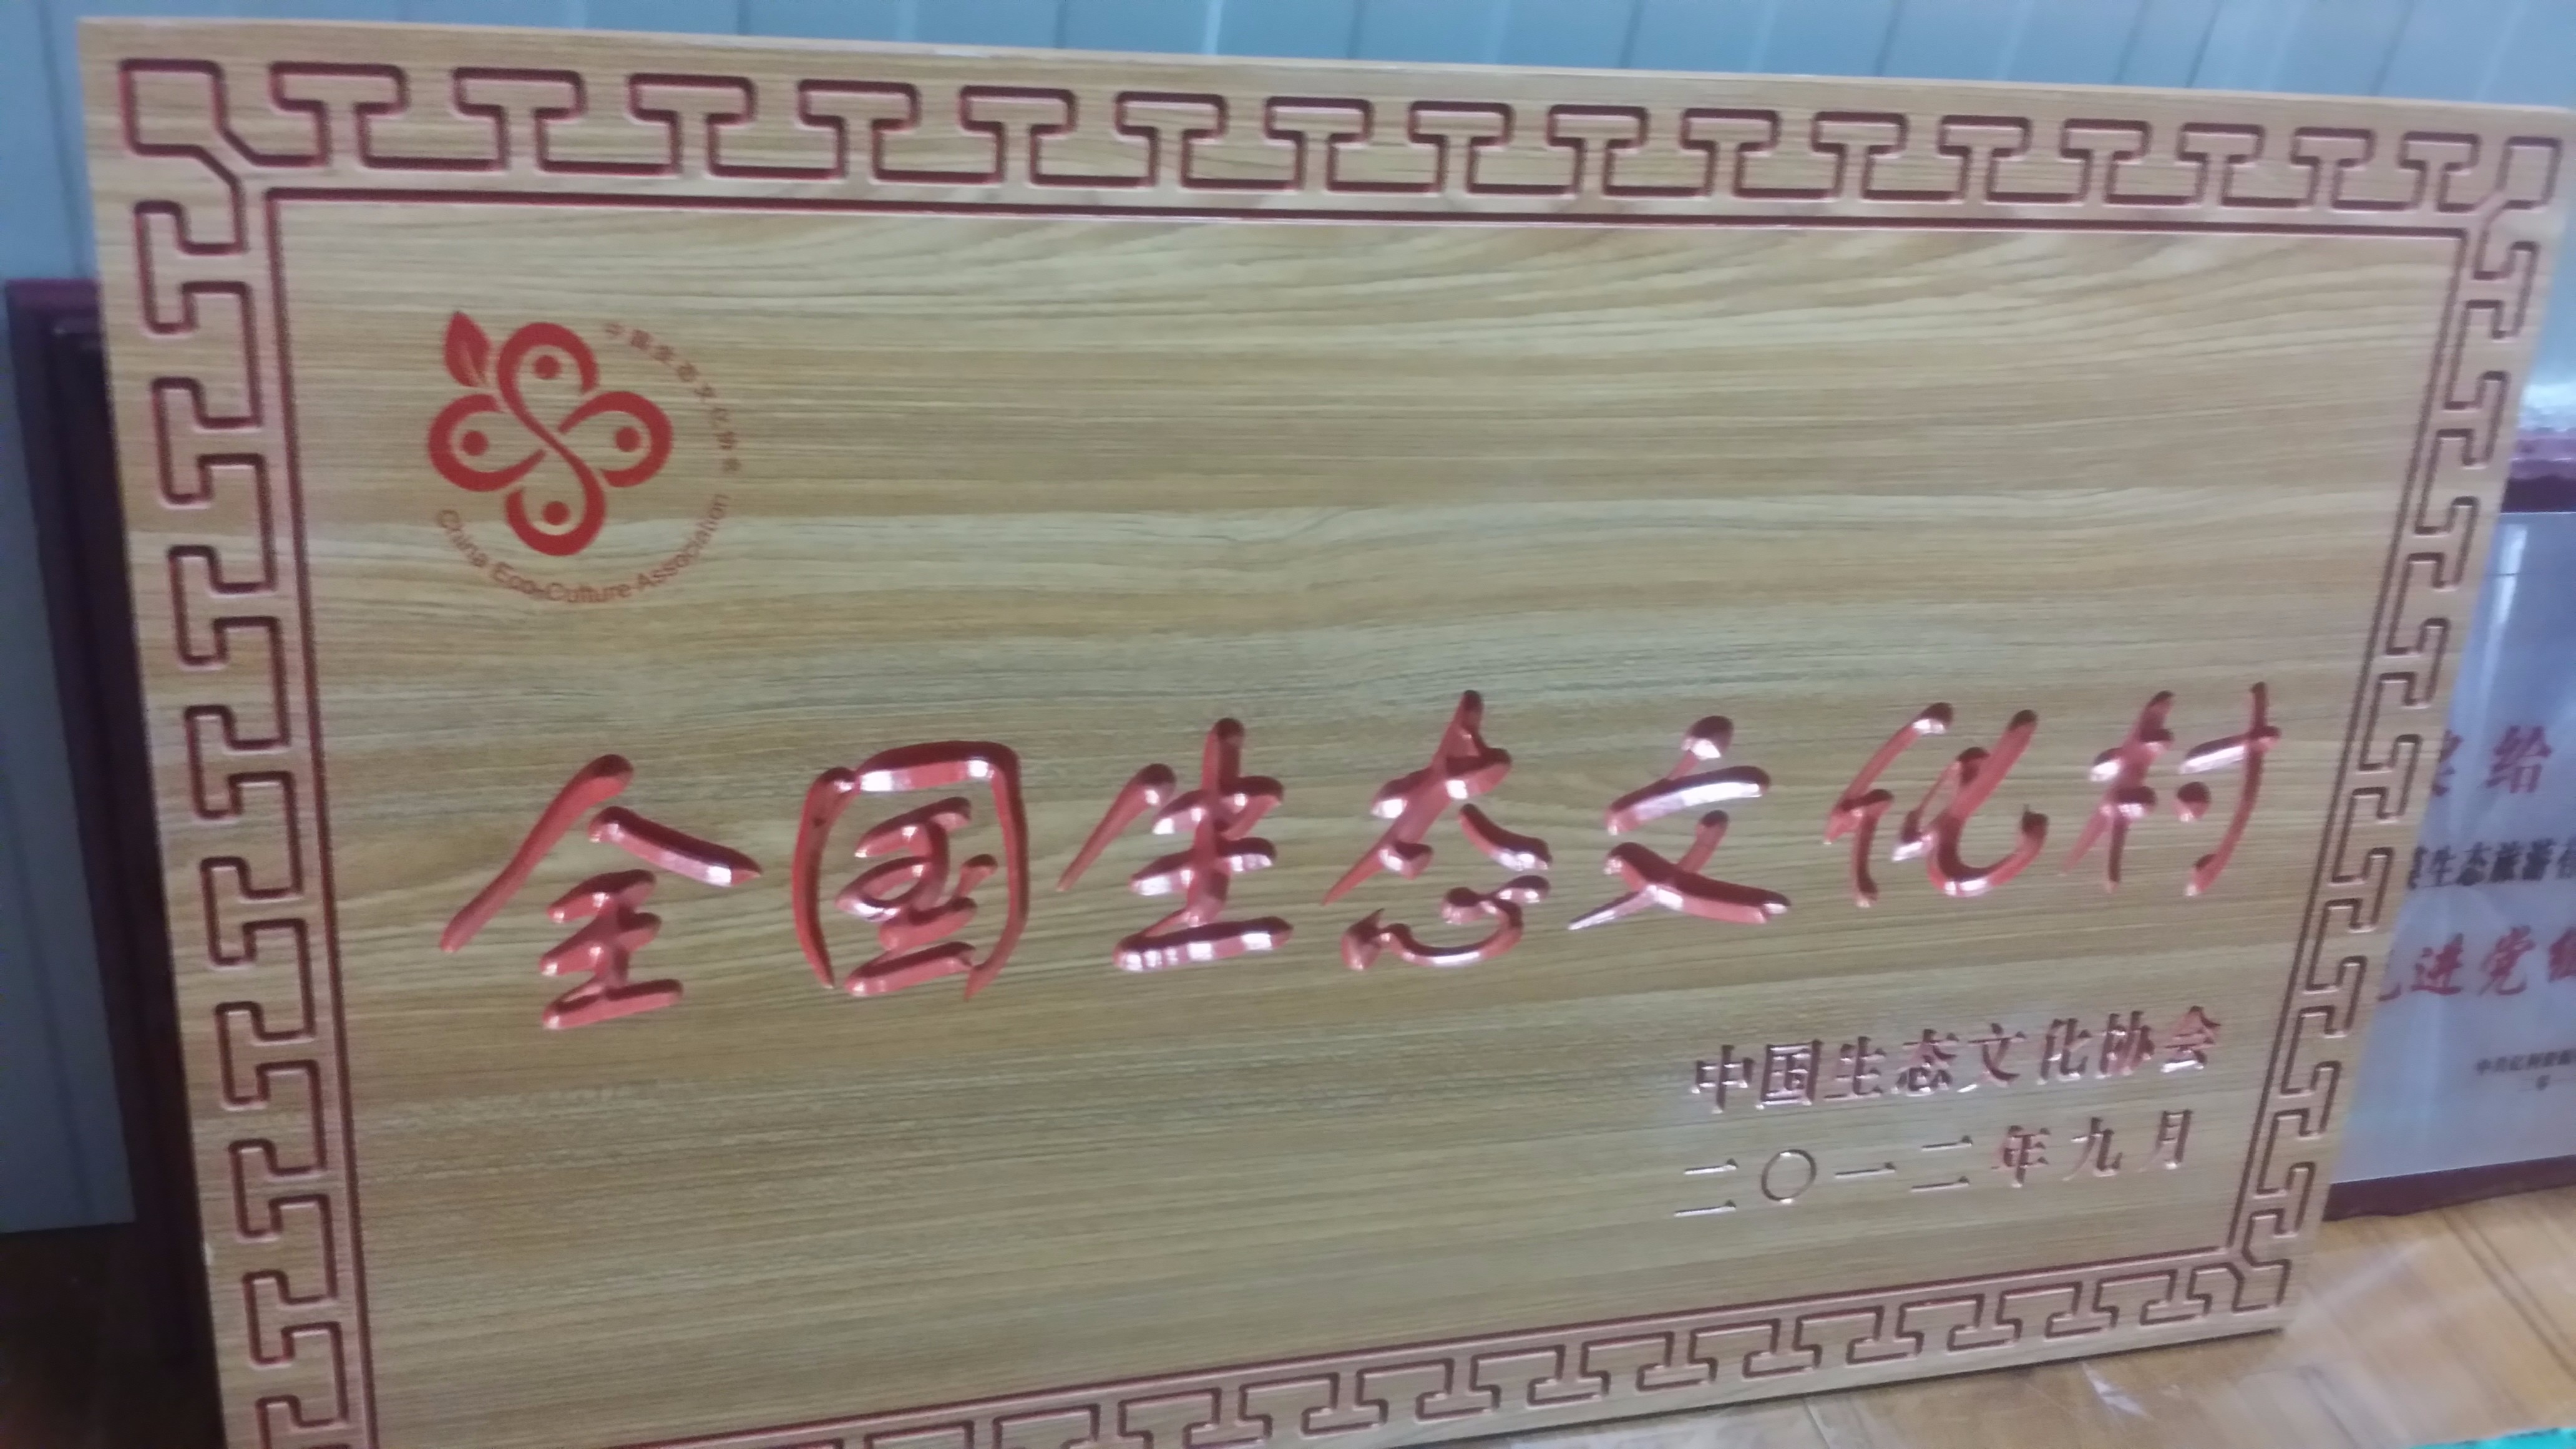 中国生态文化协会
China Eco-Culture Association
全国生态文化村
中国生态文化协会
二〇一二年九月
给
生态旅游
进党